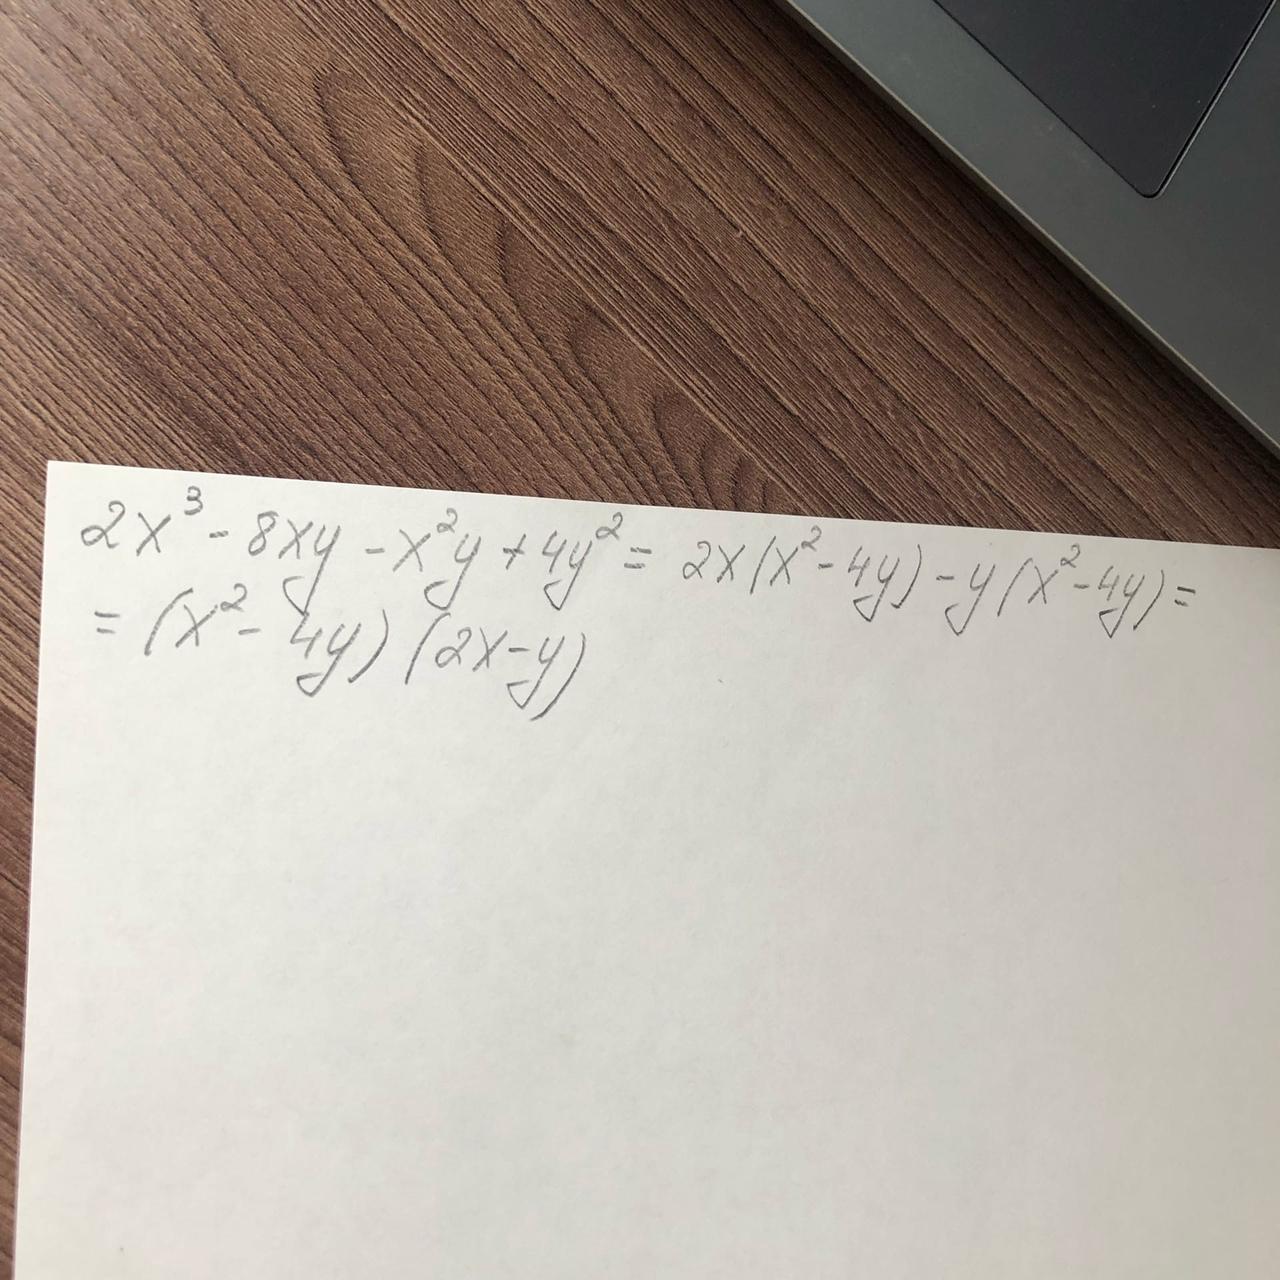 2x³ - 8xy - x²y + 4y² = 2x(x² - 4y) - y(x² - 4y) =
= (x² - 4y)(2x - y)